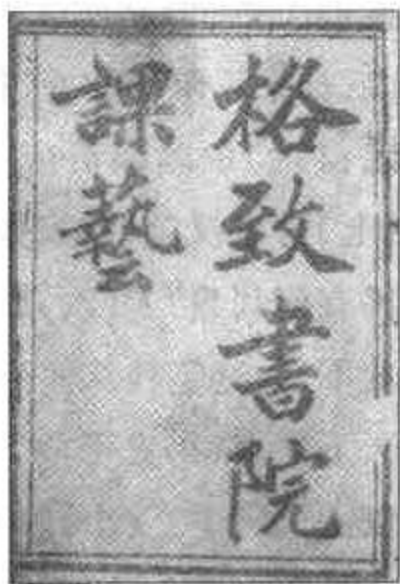 格致書院
課藝